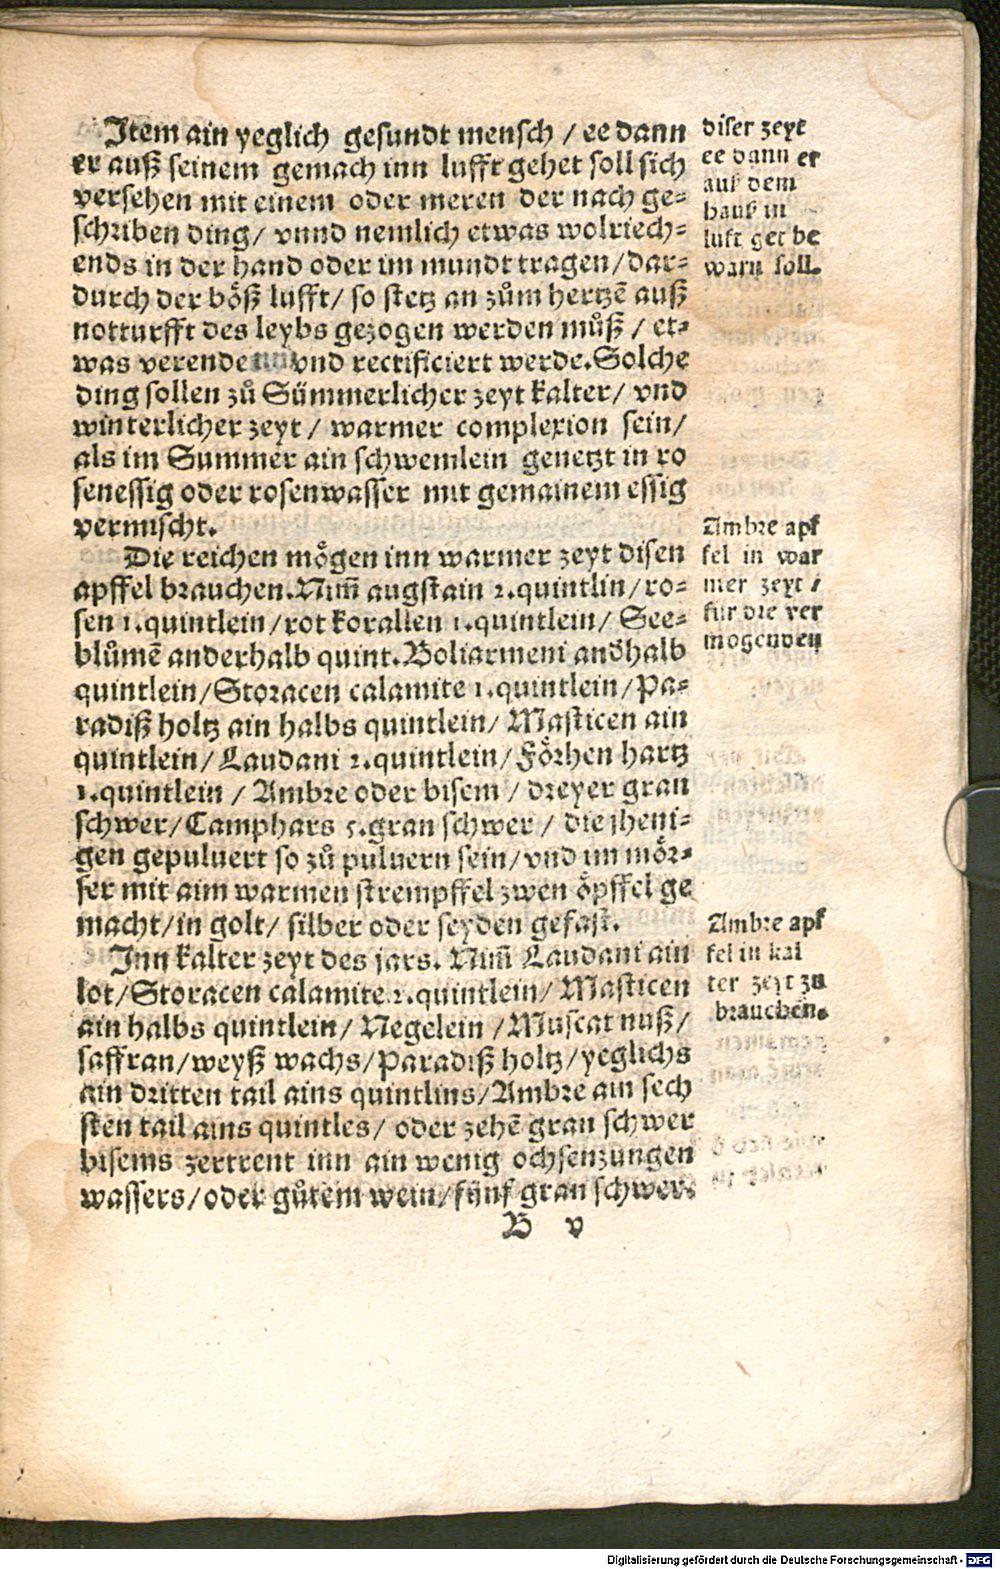 Item ain yeglich gesundt mensch / ee dann
er auß seinem gemach inn lufft gehet soll sich
versehen mit einem oder meren der nach ge-
schriben ding / vnnd nemlich etwas wolriech-
ends in der hand oder im mundt tragen / dar-
durch der böß lufft / so stetz an zům hertzē auß
notturfft des leybs gezogen werden můß / et-
was verende vnd rectificiert werde. Solche
ding sollen zů Sümmerlicher zeyt kalter / vnd
winterlicher zeyt / warmer complexion sein /
als im Summer ain schwemlein genetzt in ro
senessig oder rosenwasser mit gemainem essig
vermischt.
Die reichen mögen inn warmer zeyt disen
apffel brauchen. Nim̄ augstain 2. quintlin / ro-
sen 1. quintlein / rot korallen 1. quintlein / See-
blůmē anderhalb quint. Boliarmeni andhalb
quintlein / Storacen calamite 1. quintlein / Pa-
radiß holtz ain halbs quintlein / Masticen ain
quintlein / Laudani 2. quintlein / Förhen hartz
1. quintlein / Ambre oder bisem / dreyer gran
schwer / Camphars 5. gran schwer / die jheni-
gen gepuluert so zů puluern sein / vnd im mör-
ser mit aim warmen strempffel zwen öpffel ge
macht / in golt / silber oder seyden gefast.
Inn kalter zeyt des jars. Nim̄ Laudani ain
lot / Storacen calamite 2. quintlein / Masticen
ain halbs quintlein / Negelein / Muscat nuß /
saffran / weyß wachs / Paradiß holtz / yeglichs
ain dritten tail ains quintlins / Ambre ain sech
sten tail ains quintles / oder zehē gran schwer
bisems zertrent inn ain wenig ochsenzungen
wassers / oder gůtem wein / fünf gran schwer.
B v
diser zeyt
ee dann er
auß dem
hauß in
luft get be
warn soll.
Ambre apf
fel in war
mer zeyt /
für die ver
mogenden
Ambre apf
fel in kal
ter zeyt zu
brauchen.
Digitalisierung gefördert durch die Deutsche Forschungsgemeinschaft - DFG